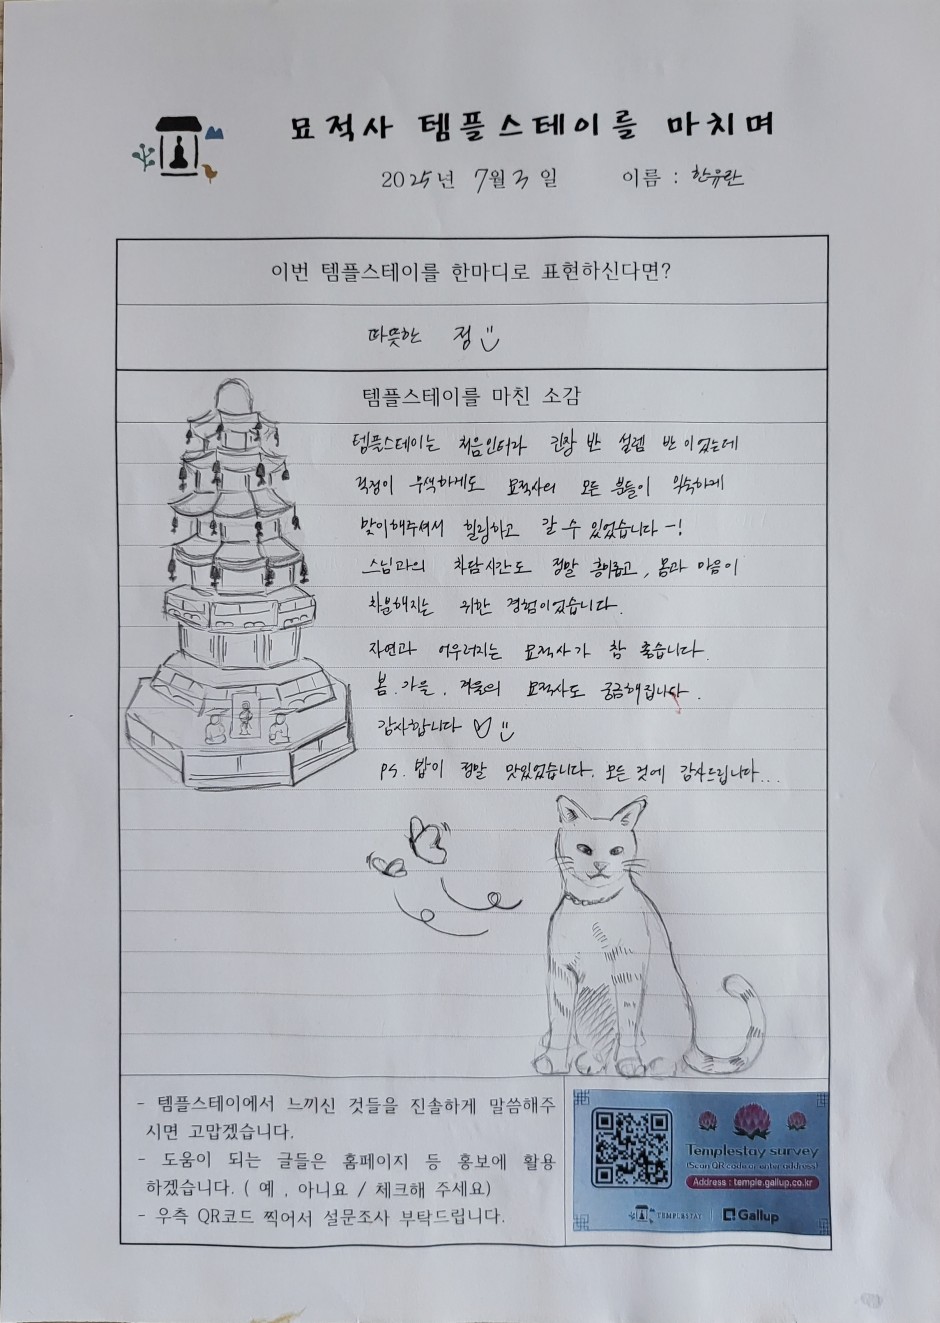 묘적사 템플스테이를 마치며
2025년 7월 3일 이름 : 한유란
이번 템플스테이를 한마디로 표현하신다면?
따뜻한 정
템플스테이를 마친 소감
템플스테이는 처음인터라 긴장 반 설렘 반 이었는데
걱정이 무색하게도 묘적사의 모든 분들이 익숙하게
맞이해주셔서 힐링하고 갈 수 있었습니다~!
스님과의 차담시간도 정말 흥미롭고, 몸과 마음이
차분해지는 귀한 경험이었습니다.
자연과 어우러지는 묘적사가 참 좋습니다.
봄. 가을, 겨울의 묘적사도 궁금해집니다.
감사합니다 ♡
PS. 밥이 정말 맛있었습니다. 모든 것에 감사드립니다...
- 템플스테이에서 느끼신 것들을 진솔하게 말씀해주
시면 고맙겠습니다.
- 도움이 되는 글들은 홈페이지 등 홍보에 활용
하겠습니다. ( 예 , 아니요 / 체크해 주세요)
- 우측 QR코드 찍어서 설문조사 부탁드립니다.
Templestay survey
(Scan QR code or enter address)
Address : temple.gallup.co.kr
TEMPLESTAY
Gallup